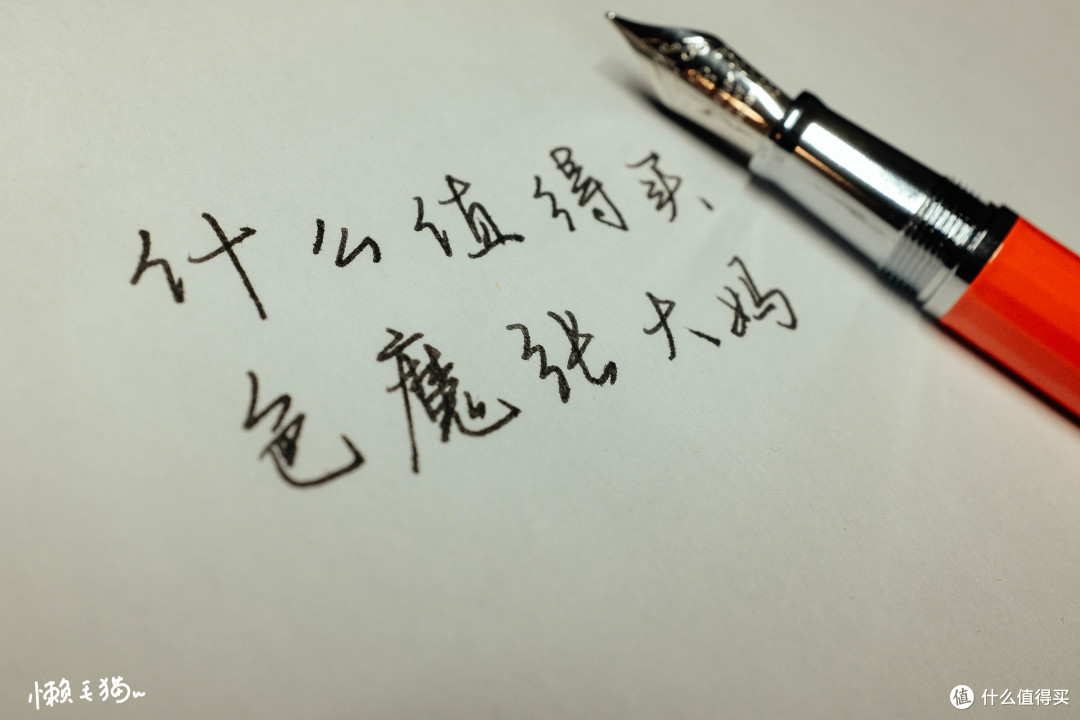 什么值得买
色魔张大妈
懒毛猫
值 什么值得买